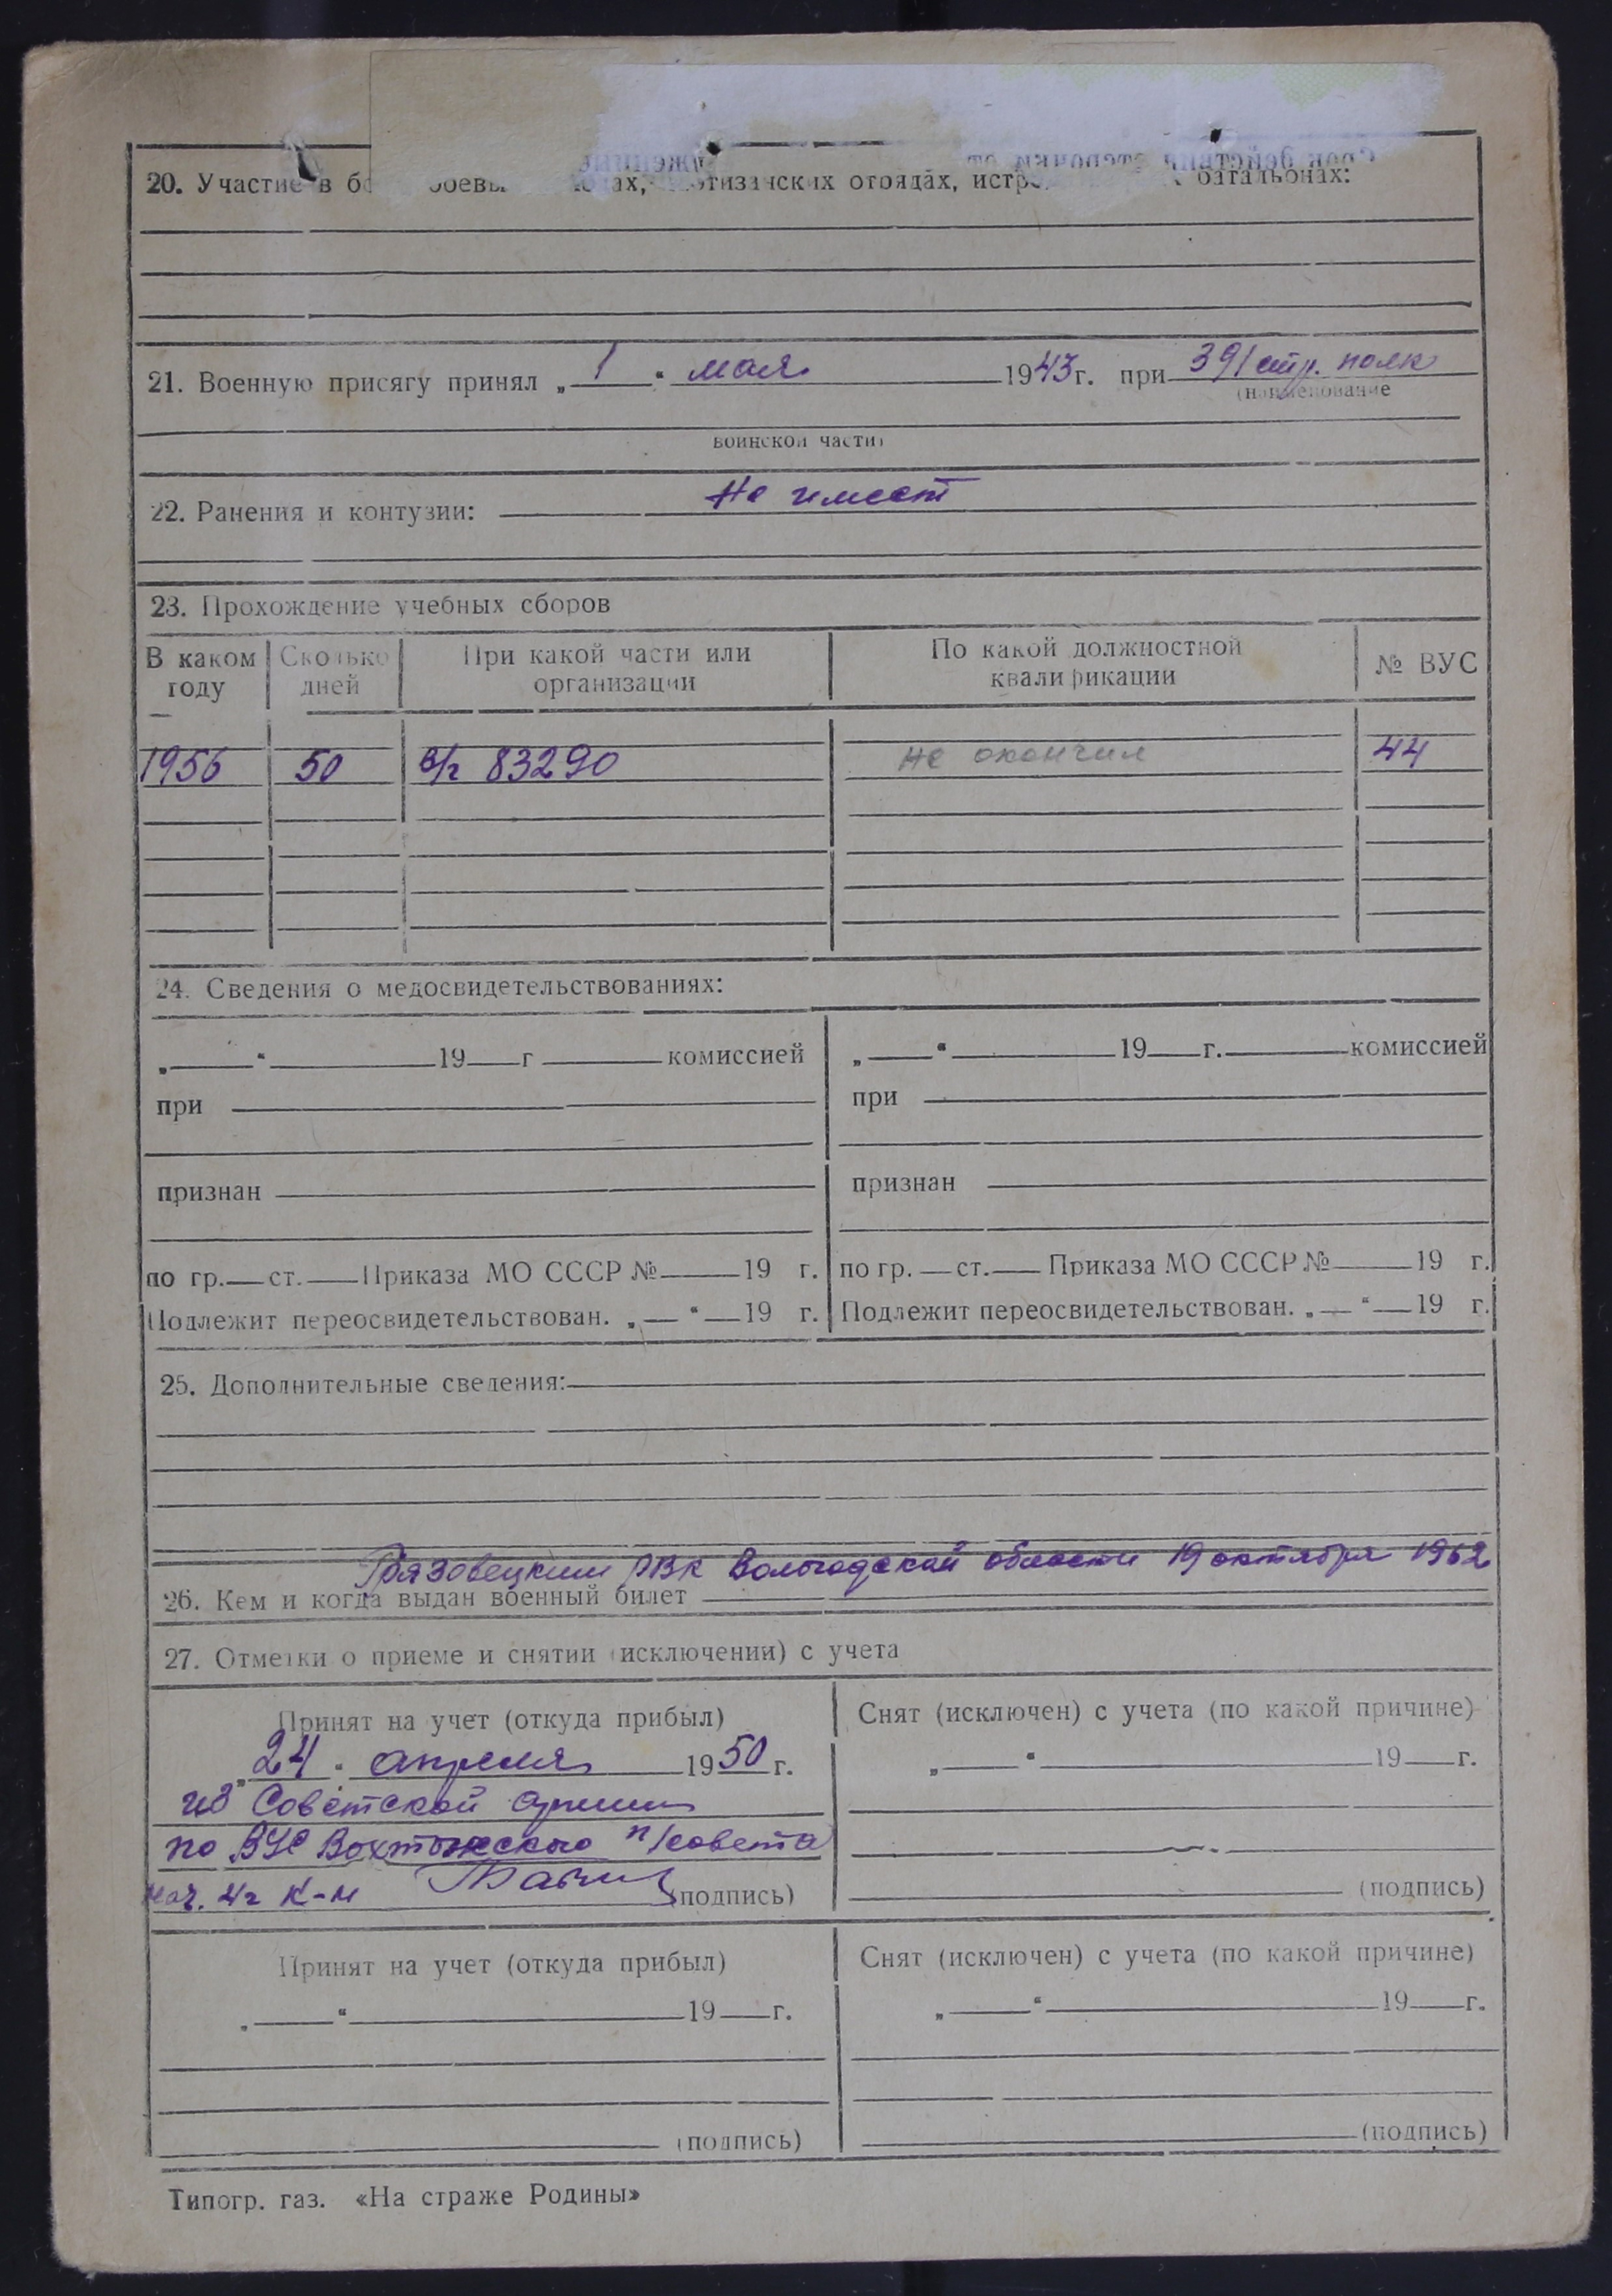 Срок действия отсрочки от
20. Участие в боевых ах, партизанских отрядах, истр батальонах:
21. Военную присягу принял „ 1 “ мая 1943 г. при 391 стр. полк
(наименование
воинской части)
22. Ранения и контузии: Не имеет
23. Прохождение учебных сборов
В каком году Сколько дней При какой части или организации По какой должностной квалификации № ВУС
1956 50 в/ч 83290 не окончил 44
24. Сведения о медосвидетельствованиях:
„ “ 19 г комиссией „ “ 19 г. комиссией
при при
признан признан
по гр. ст. Приказа МО СССР № 19 г. по гр. ст. Приказа МО СССР № 19 г.
Подлежит переосвидетельствован. „ “ 19 г. Подлежит переосвидетельствован. „ “ 19 г.
25. Дополнительные сведения:
Грязовецким РВК Вологодской области 19 октября 1962
26. Кем и когда выдан военный билет
27. Отметки о приеме и снятии (исключении) с учета
Принят на учет (откуда прибыл) Снят (исключен) с учета (по какой причине)
„ 24 “ апреля 1950 г. „ “ 19 г.
из Советской армии
по ВУС Вохтожского п/совета
нач. 4ч к-н (подпись) (подпись)
Принят на учет (откуда прибыл) Снят (исключен) с учета (по какой причине)
„ “ 19 г. „ “ 19 г.
(подпись) (подпись)
Типогр. газ. «На страже Родины»